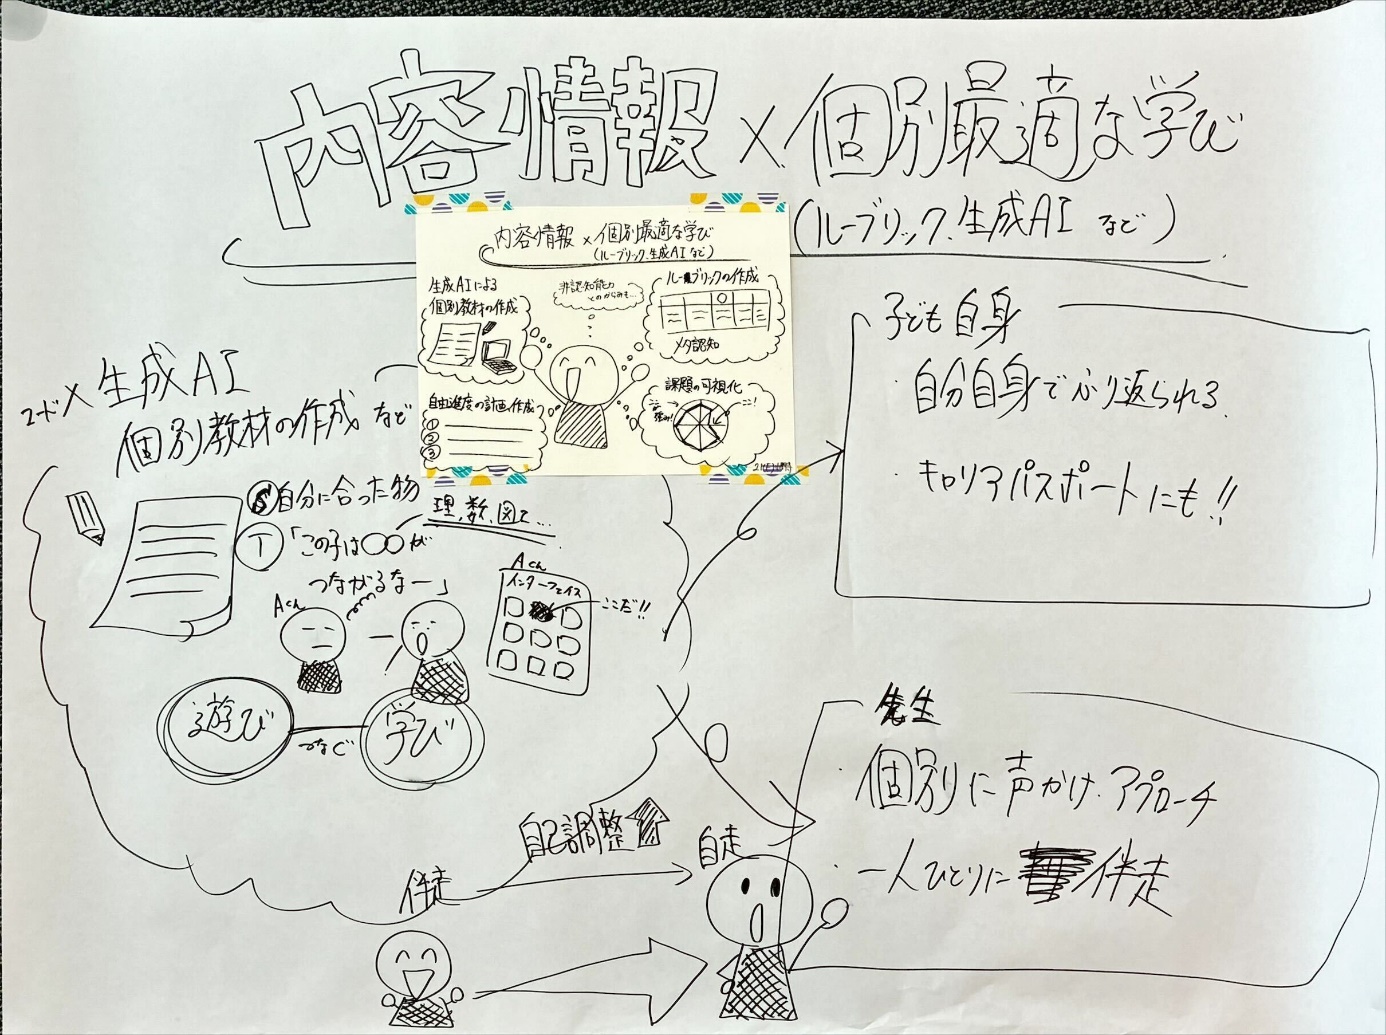 内容情報×個別最適な学び
(ルーブリック、生成AI など)
内容情報×個別最適な学び
(ルーブリック、生成AI など)
生成AIによる
個別教材の作成
非認知能力
ルーブリックの作成
メタ認知
自由進度の計画作成
①
②
③
課題の可視化
強み!
コード×生成AI
個別教材の作成 など
Ⓢ自分に合った物
理、数、図工…
Ⓣ「この子は〇〇が
つながるなー」
Aくん
Aくん
インターフェイス
ここだ!!
遊び
つなぐ
学び
自己調整
伴走
自走
子ども自身
・自分自身でふり返られる。
・キャリアパスポートにも!!
先生
・個別に声かけ、アプローチ
・一人ひとりに伴走